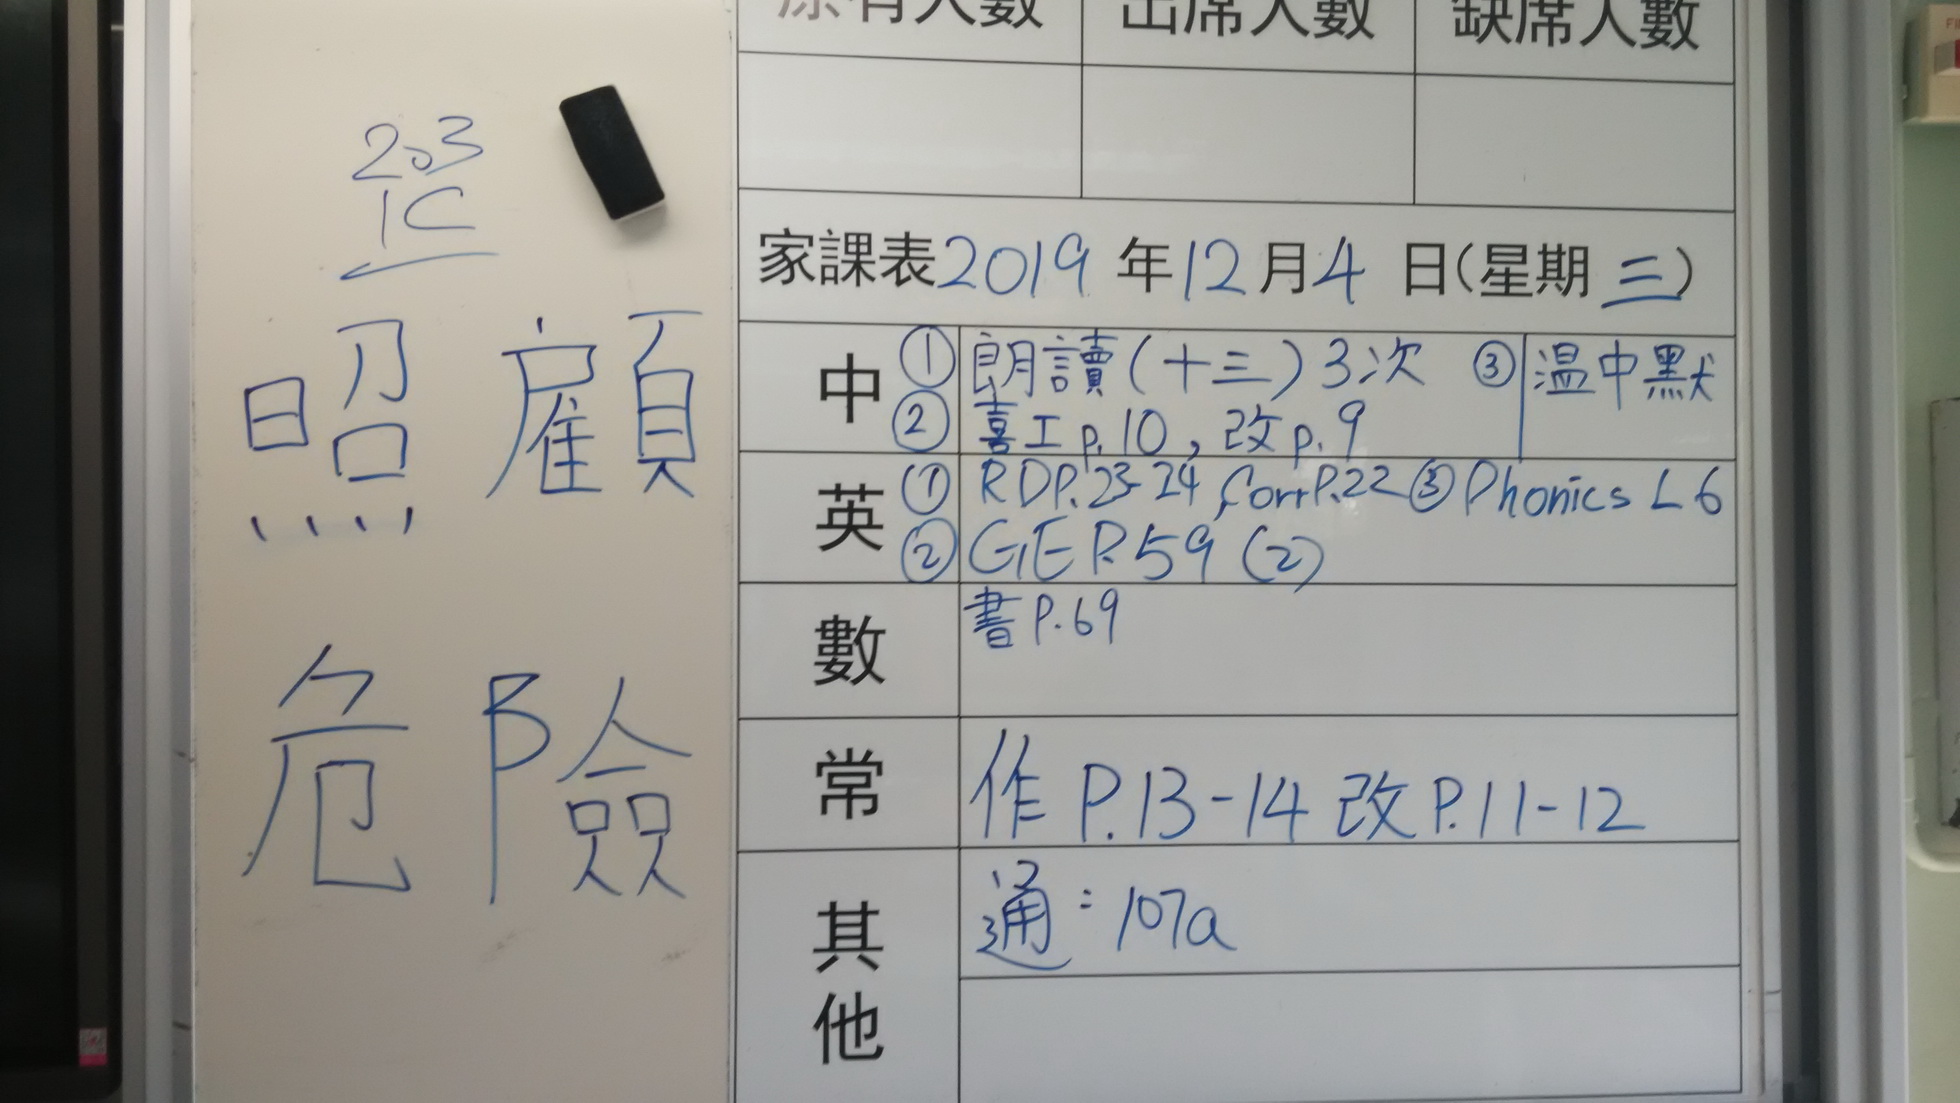 原有人數 出席人數 缺席人數
203
1C
照顧
危險
家課表2019年12月4日(星期三)
中 ① 朗讀(十三)3次 ③ 溫中默
② 喜工p.10, 改p.9
英 ① RDP.23-24, Corr P.22 ③ Phonics L6
② GE P.59 (2)
數 書P.69
常 作 P.13-14 改P.11-12
其他 通:107a